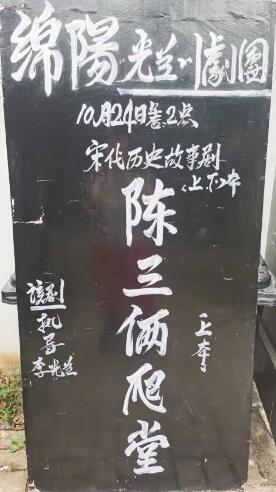 绵陽光兰川劇團
10月24日晝2点
宋代历史故事剧
(上.下)本
陈三俩爬堂
上本
该剧
执导
李光兰